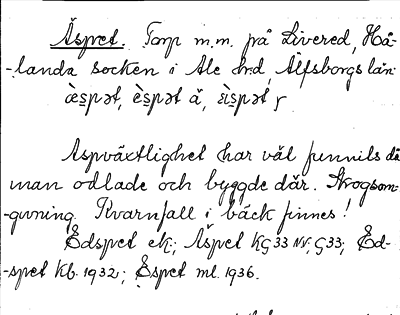 Äspet. Torp m.m. på Livered, Hå-
-landa socken i Ale hd, Älfsborgs län
æspət, èspət å,
Aspväxtlighet har väl funnits då
man odlade och byggde där. Skogsom-
-givning. Kvarnfall i bäck finnes!
Edspet ek.; Äspet KG33 NV, G33; Ed-
-spet Kb. 1932; Espet ml. 1936.